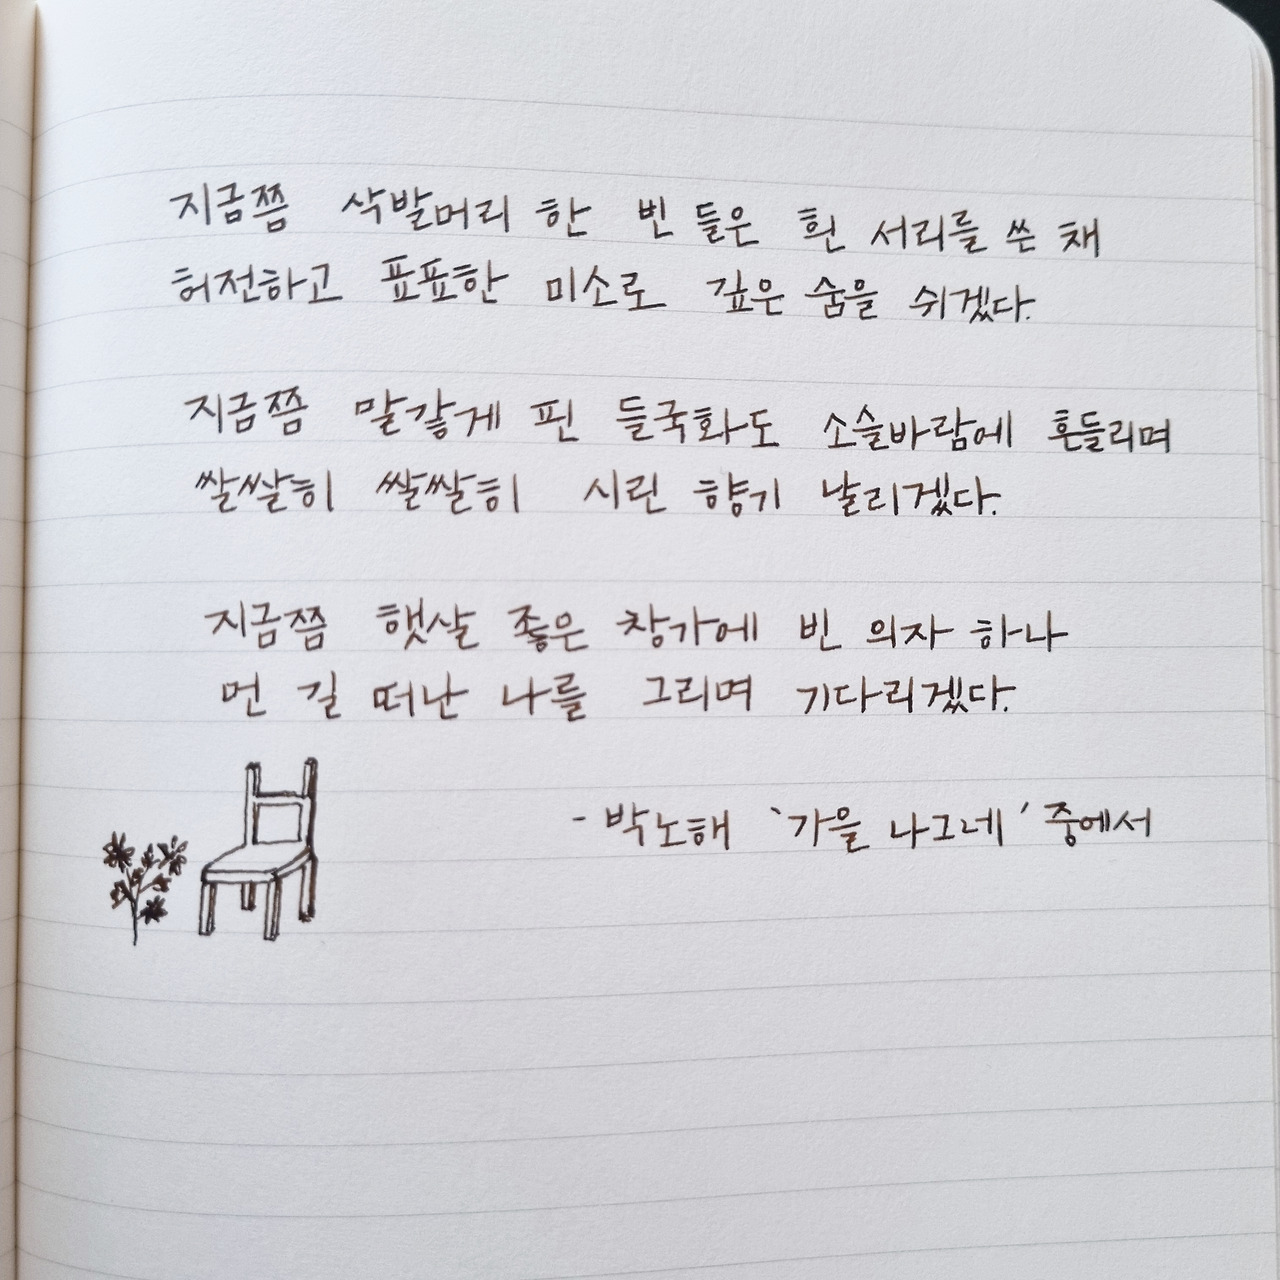 지금쯤 삭발머리 한 빈 들은 흰 서리를 쓴 채
허전하고 표표한 미소로 깊은 숨을 쉬겠다.
지금쯤 말갛게 핀 들국화도 소슬바람에 흔들리며
쌀쌀히 쌀쌀히 시린 향기 날리겠다.
지금쯤 햇살 좋은 창가에 빈 의자 하나
먼 길 떠난 나를 그리며 기다리겠다.
- 박노해 '가을 나그네' 중에서